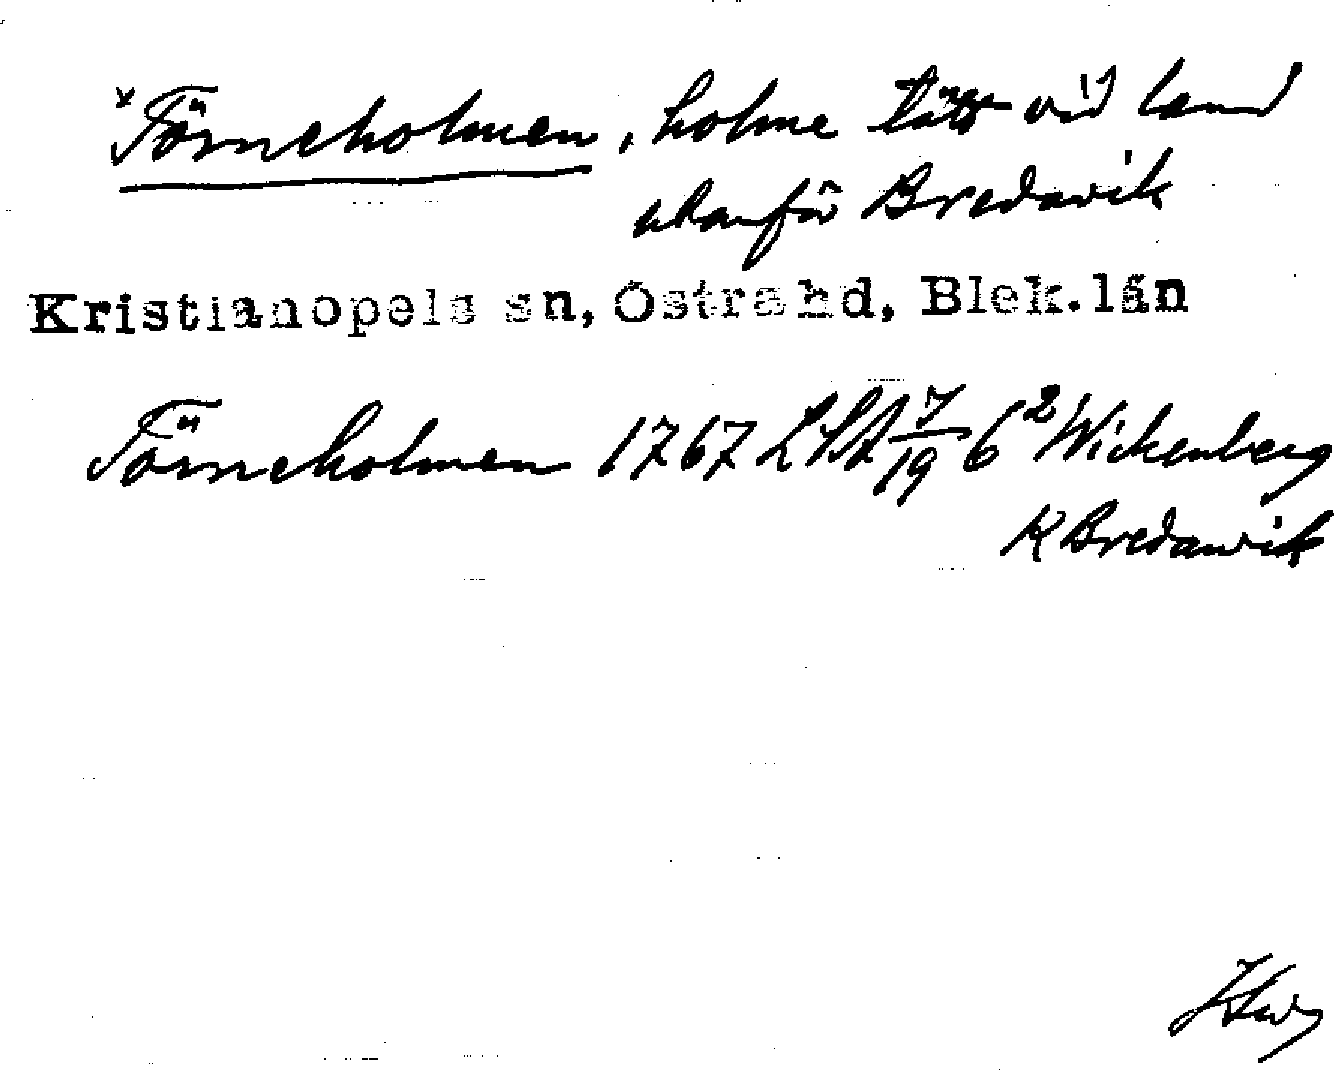 Törneholmen, holme tätt vid land
utanför Bredavik
Kristianopels sn, Östra hd, Blek.län
Törneholmen 1767 LSA 7/19 6² Wickenberg
K Bredavik